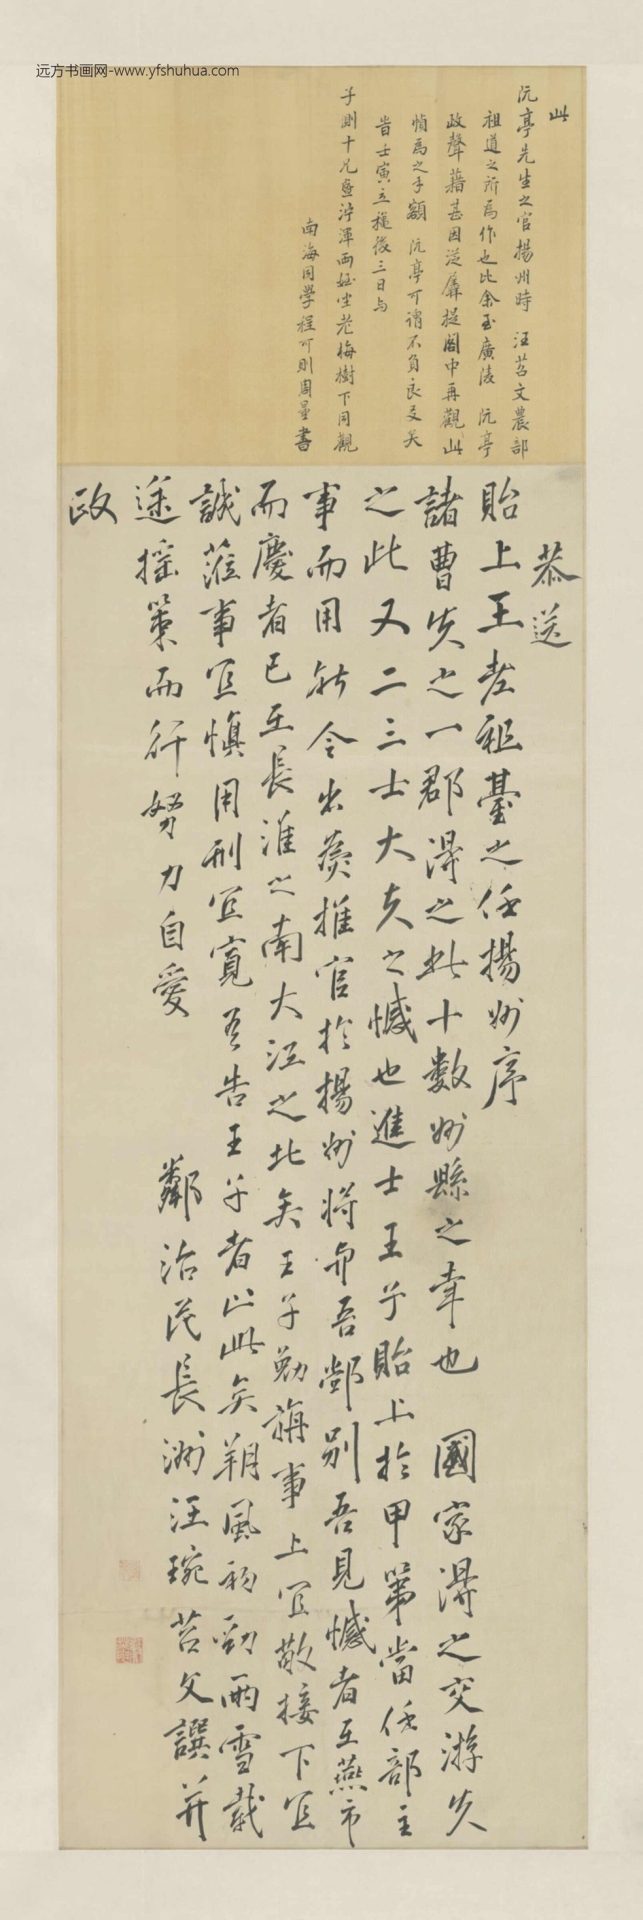 远方书画网-www.yfshuhua.com
此
阮亭先生之官揚州時 汪苕文農部
祖道之所為作也比余至廣陵 阮亭
政聲藉甚因從犀提閣中再觀此
幀為之手額 阮亭可謂不負良友矣
旹壬寅立穐後三日与
于測十兄
坐老梅樹下同觀
南海同學程可則周量書
恭送
貽上王老祖臺之任揚州序
諸曹失之一郡得之此十數州縣之幸也 國家得之交游失
之此又二三士大夫之憾也進士王子貽上於甲第當任部主
事而用新令出為推官於揚州將與吾鄉別吾見憾者在燕市
而慶者已在長淮之南大江之北矣王子勉旃事上宜敬接下宜
誠蒞事宜慎用刑宜寬吾告王子者止此矣朔風初勁雨雪載
塗搖策而行努力自愛
鄰治民長洲汪琬苕文譔并
政